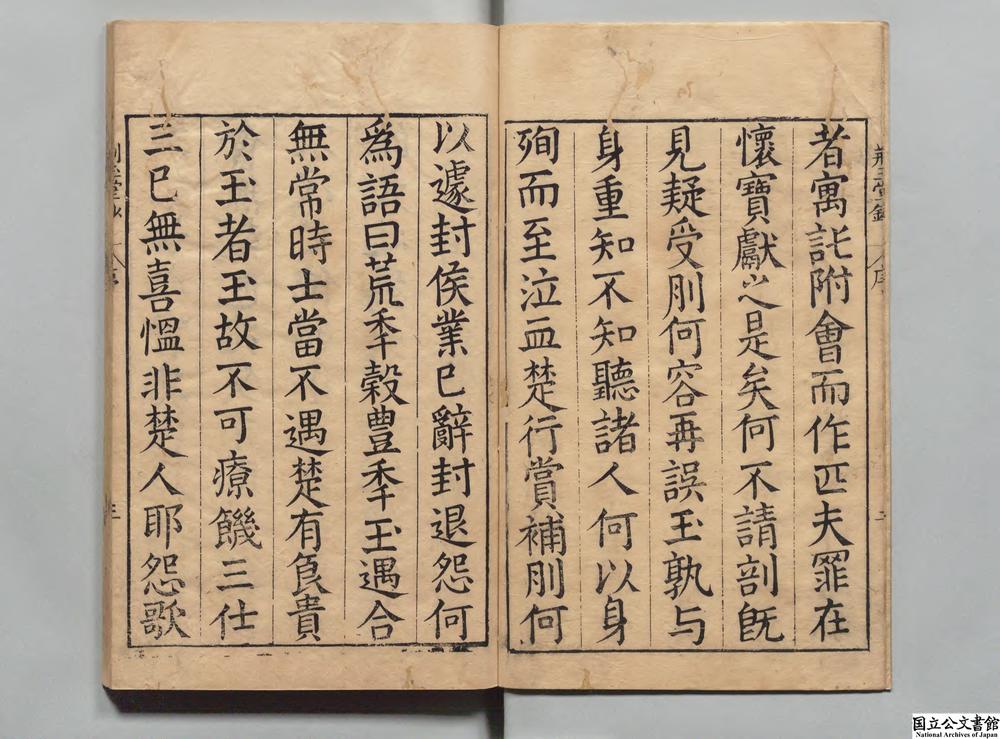 者寓託附會而作匹夫罪在
懷寶獻之是矣何不請剖旣
見疑受刖何容再誤玉孰与
身重知不知聽諸人何以身
殉而至泣血楚行賞補刖何
以遽封侯業已辭封退怨何
為語曰荒秊穀豊秊玉遇合
無常時士當不遇楚有負貴
於玉者玉故不可療饑三仕
三已無喜慍非楚人耶怨歌
序
国立公文書館
National Archives of Japan